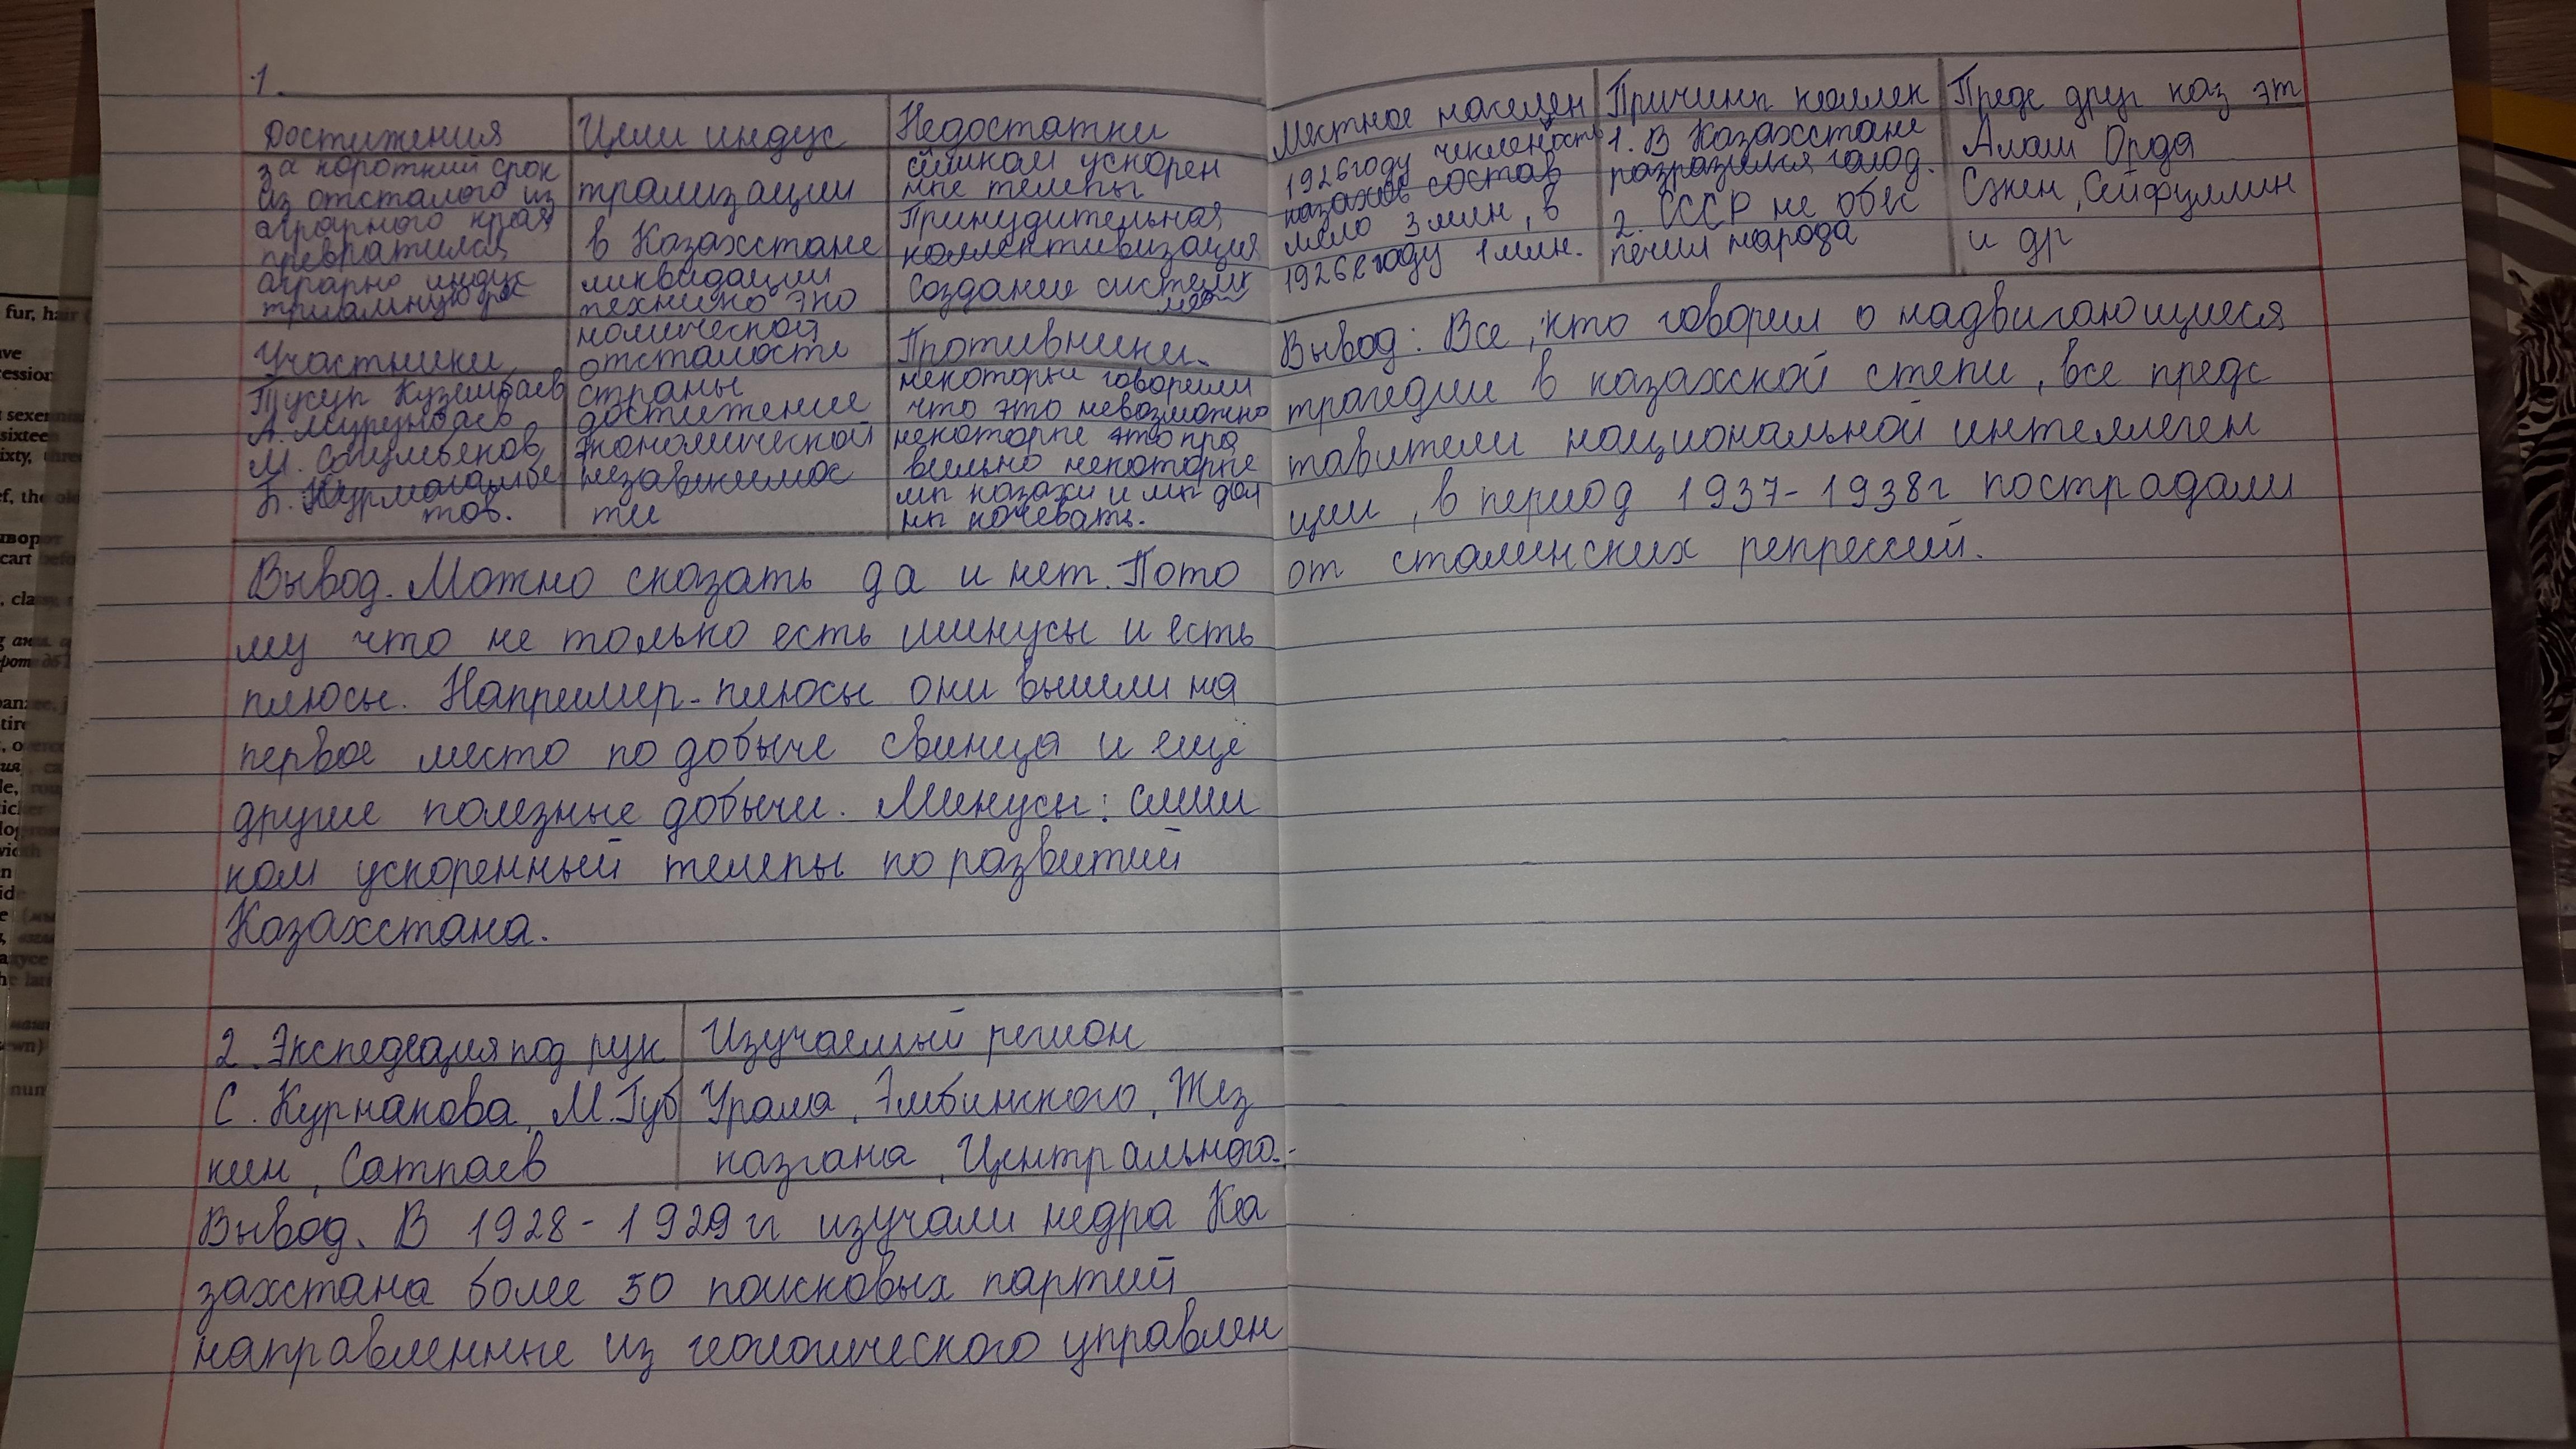 1.
Достижения
за короткий срок
из отсталого из
аграрного края
превратился
аграрно индус
триальную рес
Участники
Тусуп Куземпаев
А.
М.
Б. Нурмагамбе
тов.
Цели индус
трализации
в Казахстане
ликвидации
технико эко
номической
отсталости
страны
достижение
экономической
независимос
ти
Недостатки
слишком ускорен
ные темепы
Принудительная
коллективизация
Создание систем
Противники.
некоторые говорили
что это невозможно
некоторые это пра
вильно некоторые
мы казахи и мы дол
ны кочевать.
Вывод. Можно сказать да и нет. Пото
му что не только есть минусы и есть
плюсы. Например - плюсы они вышли на
первое место по добыче свинца и еще
другие полезные добычи. Минусы: слиш
ком ускоренный темепы по развитий
Казахстана.
2. под рук
С. Курнакова, М. Губ
кин, Сатпаев
Изучаемый регион
Урала, Эмбинского, Жез
казгана, Центрального.
Вывод. В 1928 - 1929 гг изучали недра Ка
захстана более 50 поисковых партий
направленные из геологического управлен
Местное населен
1926 году
казахов состав
мело 3 млн, в
1926 году 1 млн.
Причины коллек
1. В Казахстане
разразился голод.
2. СССР не обес
печил народа
Предс друг каз эт
Алаш Орда
Сәкен, Сейфуллин
и др
Вывод: Все, кто говорил о надвигающиеся
трагедии в казахской степи, все предс
тавители национальной интеллеген
ции, в период 1937 - 1938 г пострадали
от сталинских репрессий.